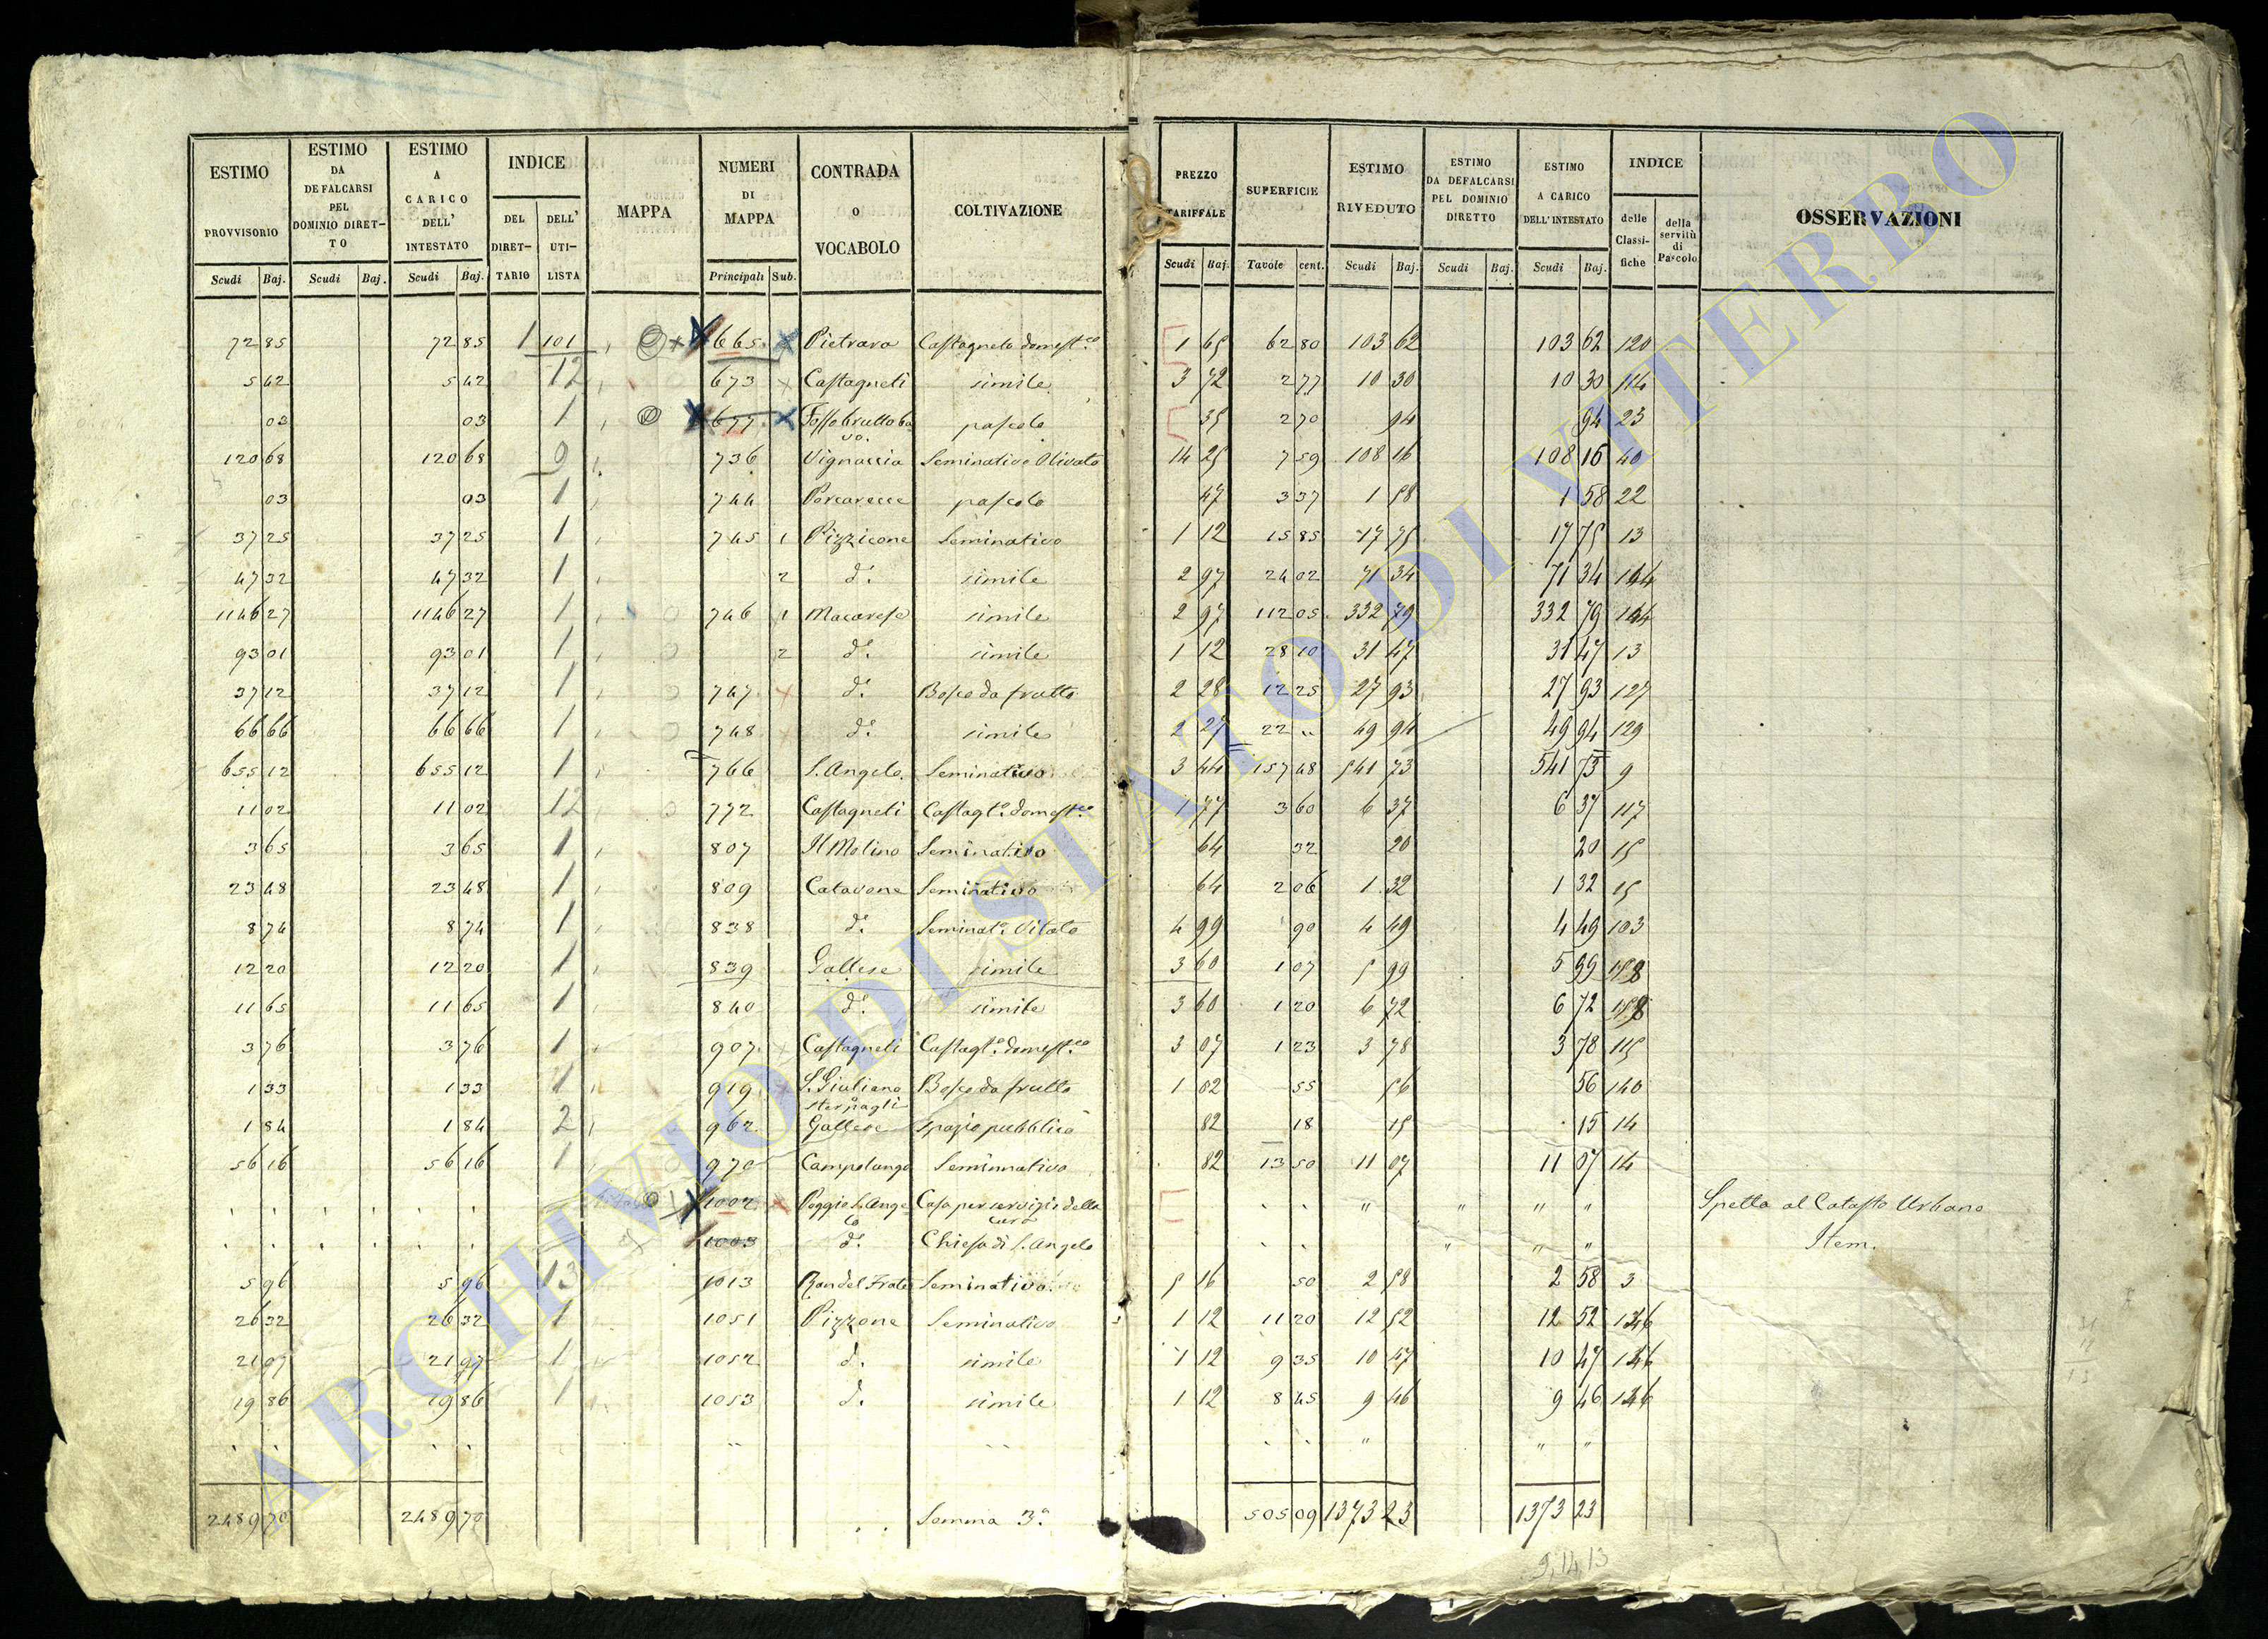 ESTIMO PROVVISORIO Scudi Baj.
ESTIMO DA DEFALCARSI PEL DOMINIO DIRET-TO Scudi Baj.
ESTIMO A CARICO DELL' INTESTATO Scudi Baj.
INDICE DEL DIRET-TARIO DELL' UTI-LISTA
MAPPA
NUMERI DI MAPPA Principali Sub.
CONTRADA O VOCABOLO
COLTIVAZIONE
PREZZO TARIFFALE Scudi Baj.
SUPERFICIE Tavole cent.
ESTIMO RIVEDUTO Scudi Baj.
ESTIMO DA DEFALCARSI PEL DOMINIO DIRETTO Scudi Baj.
ESTIMO A CARICO DELL'INTESTATO Scudi Baj.
INDICE delle Classi-fiche della servitù di Pascolo
OSSERVAZIONI
72 85 72 85 1 101 665 Pietrara Castagneto domest.co 1 65 62 80 103 62 103 62 120
5 42 5 42 12 673 Castagneti simile 3 72 2 77 10 30 10 30 114
03 03 1 677 pascolo 35 2 70 94 94 23
120 68 120 68 9 736 Vignaccia Seminativo Olivato 14 25 7 59 108 16 108 16 40
03 03 1 744 Porcarecce pascolo 47 3 37 1 58 1 58 22
37 25 37 25 1 745 1 Pizzicone Seminativo 1 12 15 85 17 75 17 75 13
47 32 47 32 1 2 d.o simile 2 97 24 02 71 34 71 34
1146 27 1146 27 1 746 1 Macarese simile 2 97 112 05 332 79 332 79
93 01 93 01 1 2 d.o simile 1 12 28 10 31 47 31 47 13
37 12 37 12 1 747 d.o Bosco da frutto 2 28 12 25 27 93 27 93 127
66 66 66 66 1 748 d.o simile 2 27 22 " 49 94 49 94 129
655 12 655 12 1 766 S. Angelo Seminativo 3 44 157 48 541 73 541 73 9
11 02 11 02 12 772 Castagneti Castagt.o domest.co 1 77 3 60 6 37 6 37 117
3 65 3 65 1 807 Il Molino Seminativo 64 32 20 20 15
23 48 23 48 1 809 Catavone Seminativo 64 2 06 1 32 1 32 15
8 74 8 74 1 838 d.o Seminat.o Vitato 4 99 90 4 49 4 49 103
12 20 12 20 1 839 Gallese simile 3 60 1 07 5 99 5 99
11 65 11 65 1 840 d.o simile 3 60 1 20 6 72 6 72
3 76 3 76 1 907 Castagneti Castagt.o domest.co 3 07 1 23 3 78 3 78 115
1 33 1 33 1 919 S. Giuliano Bosco da frutto 1 02 55 56 56 140
sterpagli
1 84 1 84 2 962 Gallese spazio pubblico 82 18 15 15 14
56 16 56 16 1 970 Campolungo Seminnativo 82 13 50 11 07 11 07 14
1002 Poggio S. Ange Casa per servigi della " " " " Spetta al Catasto Urbano
lo cura
1003 d.o Chiesa di S. Angelo " " " Item.
5 96 5 96 13 1013 Seminativo 5 16 50 2 58 2 58 3
26 32 26 32 1 1051 Pizzone Seminativo 1 12 11 20 12 52 12 52
21 97 21 97 1 1052 d. simile 1 12 9 35 10 47 10 47
19 86 19 86 1 1053 d. simile 1 12 8 45 9 46 9 46
2489 70 2489 70 Somma 3.a 505 09 1373 23 1373 23
9,14,13
ARCHIVIO DI STATO DI VITERBO